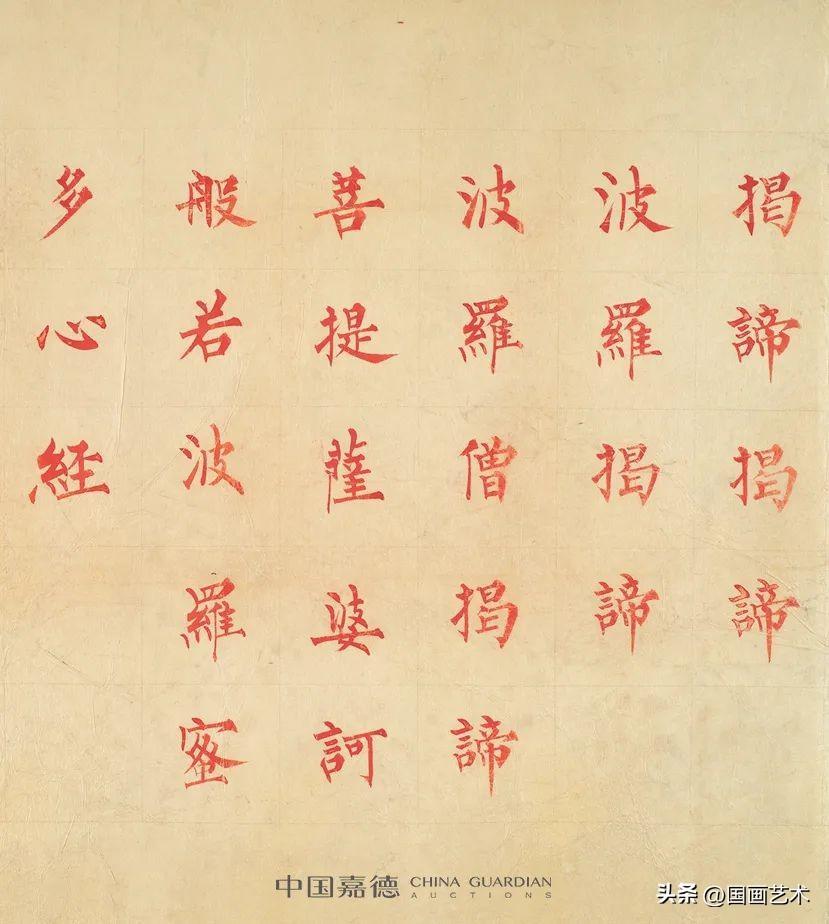 揭諦揭諦
波羅揭諦
波羅僧揭諦
菩提薩婆訶
般若波羅蜜
多心經
中国嘉德 CHINA GUARDIAN
AUCTIONS
头条 @国画艺术